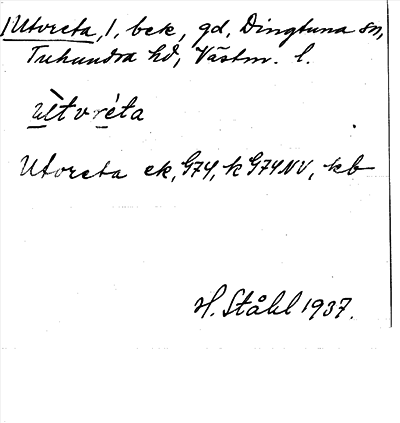 Utvreta, 1, bck, gd, Dingtuna sn,
Tuhundra hd, Västm. l.
ùtvréta
Utvreta ek, G74, k G74NV, kb
H. Ståhl 1937.